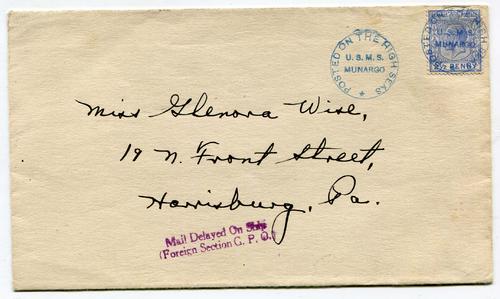 POSTED ON THE HIGH SEAS
U.S.M.S.
MUNARGO
POSTED ON THE HIGH
U.S.M.S.
MUNARGO
PENNY
Miss Glenora Wise,
19 N. Front Street,
Harrisburg, Pa.
Mail Delayed On Ship
(Foreign Section G. P. O.)